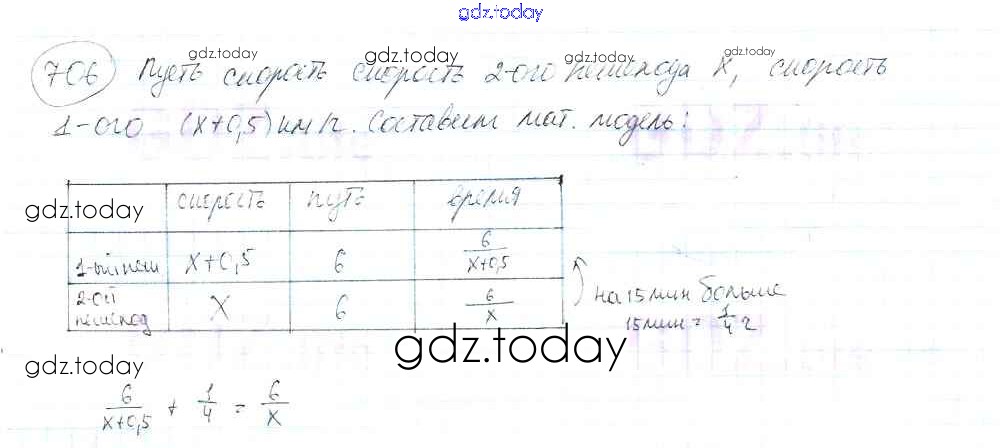 gdz.today
706 Пусть скорость скорость 2-ого пешехода x, скорость
1-ого (x+0,5) км/ч. Составим мат. модель:
gdz.today gdz.today gdz.today gdz.today
скорость путь время
1-ый пеш x+0,5 6 6/x+0,5
2-ой пешеход x 6 6/x
на 15 мин больше
15 мин = 1/4 ч
gdz.today
gdz.today
gdz.today
6/x+0,5 + 1/4 = 6/x